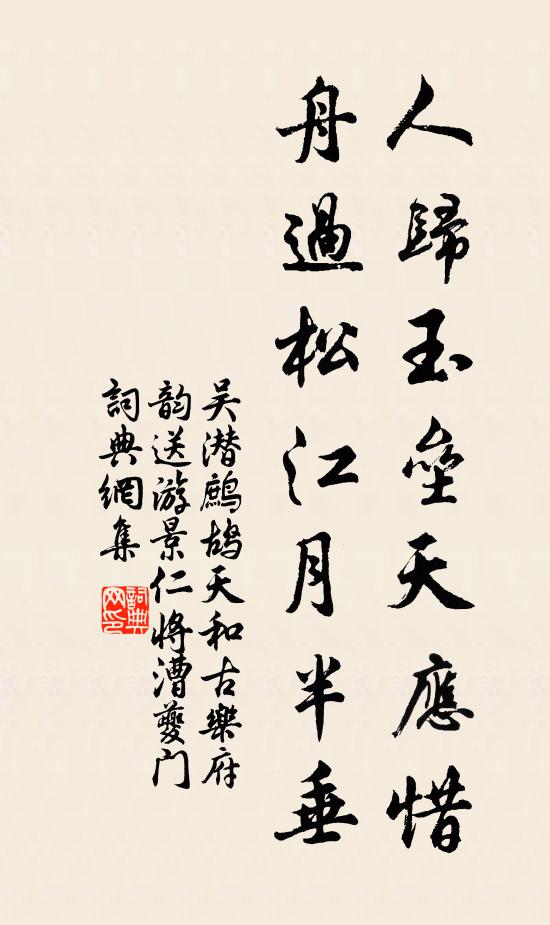 人歸玉壘天應惜
舟過松江月半垂
吴潜鷓鴣天和古樂府
韵送游景仁将漕夔门
詞典網集
詞典
网印